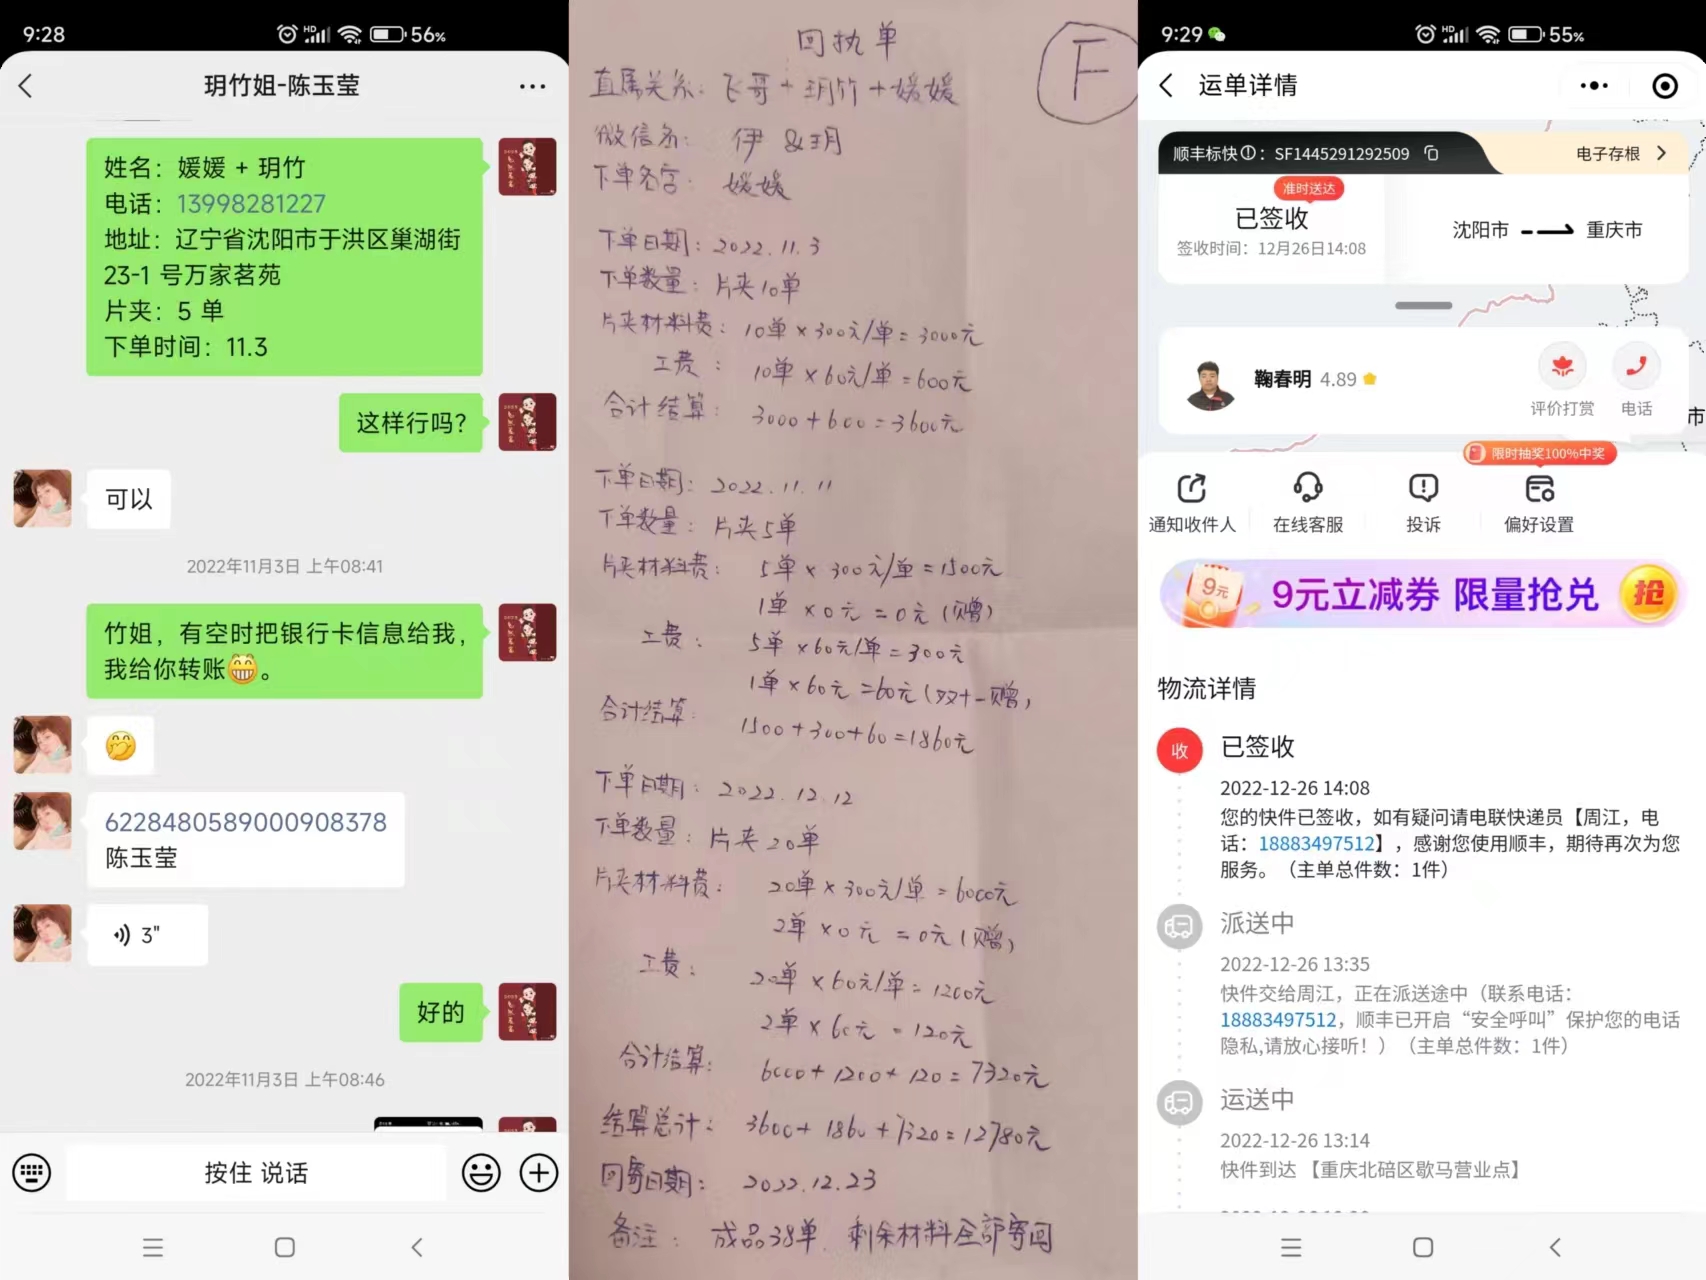 9:28
HD
56%
玥竹姐-陈玉莹
姓名：媛媛 + 玥竹
电话：13998281227
地址：辽宁省沈阳市于洪区巢湖街
23-1 号万家茗苑
片夹：5 单
下单时间：11.3
这样行吗？
可以
2022年11月3日 上午08:41
竹姐，有空时把银行卡信息给我，
我给你转账。
6228480589000908378
陈玉莹
3"
好的
2022年11月3日 上午08:46
按住 说话
回执单
F
直属关系：飞哥+玥竹+媛媛
微信名：伊&玥
下单名字：媛媛
下单日期：2022.11.3
下单数量：片夹10单
片夹材料费：10单×300元/单=3000元
工费：10单×60元/单=600元
合计结算：3000+600=3600元
下单日期：2022.11.11
下单数量：片夹5单
片夹材料费：5单×300元/单=1500元
1单×0元=0元(赠)
工费：5单×60元/单=300元
1单×60元=60元(双十一赠)
合计结算：1500+300+60=1860元
下单日期：2022.12.12
下单数量：片夹20单
片夹材料费：20单×300元/单=6000元
2单×0元=0元(赠)
工费：20单×60元/单=1200元
2单×60元=120元
合计结算：6000+1200+120=7320元
结算总计：3600+1860+7320=12780元
回寄日期：2022.12.23
备注：成品38单.剩余材料全部寄回
9:29
HD
55%
运单详情
顺丰标快：SF1445291292509
电子存根
准时送达
已签收
签收时间：12月26日14:08
沈阳市
重庆市
鞠春明 4.89
评价打赏
电话
市
限时抽奖100%中奖
通知收件人
在线客服
投诉
偏好设置
9元
9元立减券 限量抢兑
抢
物流详情
收
已签收
2022-12-26 14:08
您的快件已签收，如有疑问请电联快递员【周江，电
话：18883497512】，感谢您使用顺丰，期待再次为您
服务。（主单总件数：1件）
派送中
2022-12-26 13:35
快件交给周江，正在派送途中（联系电话：
18883497512，顺丰已开启“安全呼叫”保护您的电话
隐私,请放心接听！）（主单总件数：1件）
运送中
2022-12-26 13:14
快件到达 【重庆北碚区歇马营业点】